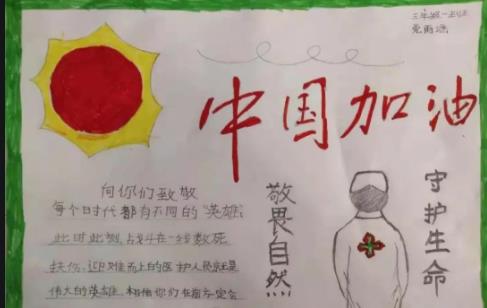 三年级一班
中国加油
向你们致敬
每个时代都有不同的“英雄”
此时此刻,战斗在一线救死
扶伤、迎难而上的医护人员就是
伟大的英雄,相信你们在前方定会
敬畏自然
守护生命